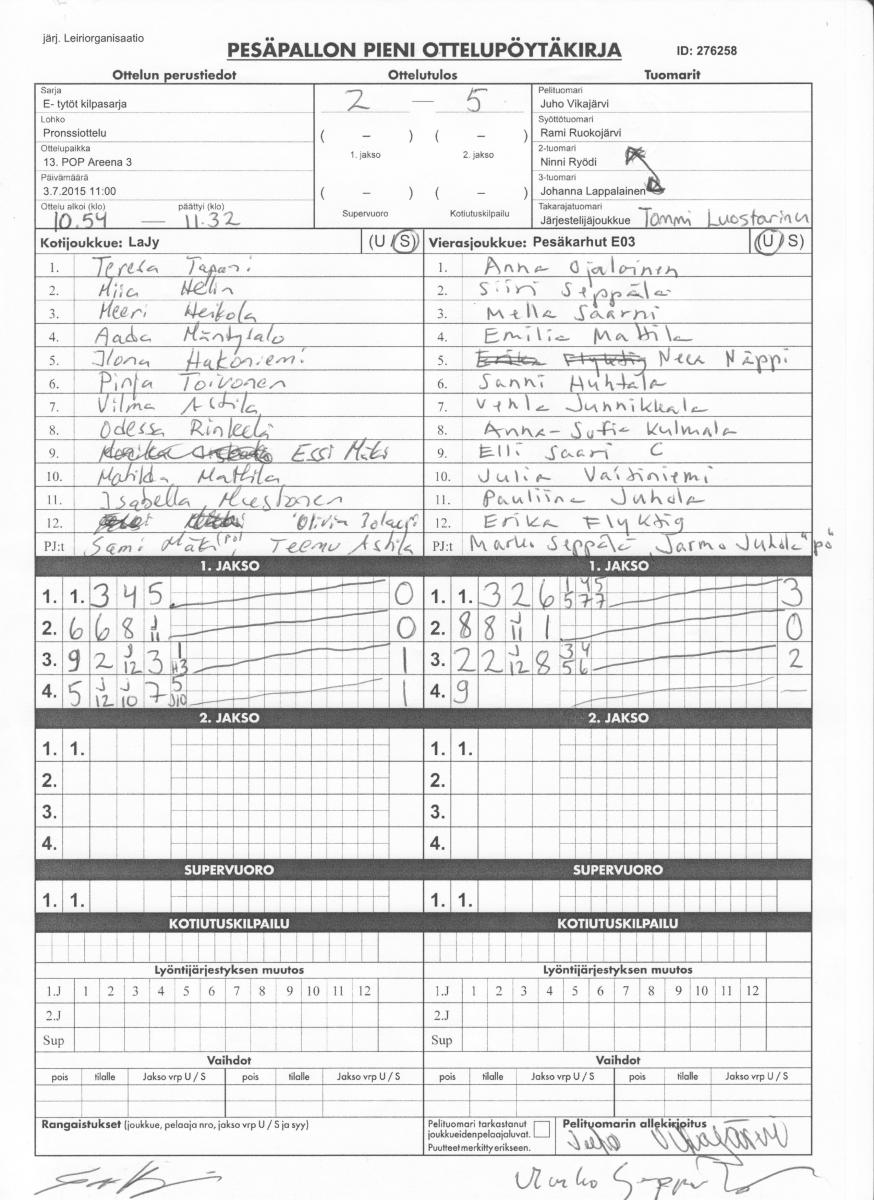 järj. Leiriorganisaatio
PESÄPALLON PIENI OTTELUPÖYTÄKIRJA
ID: 276258
Ottelun perustiedot Ottelutulos Tuomarit
Sarja
E- tytöt kilpasarja
Lohko
Pronssiottelu
Ottelupaikka
13. POP Areena 3
Päivämäärä
3.7.2015 11:00
Ottelu alkoi (klo) päättyi (klo)
10.54 — 11.32
2 — 5
( – ) ( – )
1. jakso 2. jakso
( – ) ( – )
Supervuoro Kotiutuskilpailu
Pelituomari
Juho Vikajärvi
Syöttötuomari
Rami Ruokojärvi
2-tuomari
Ninni Ryödi
3-tuomari
Johanna Lappalainen
Takarajatuomari
Järjestelijäjoukkue Tommi Luostarinen
Kotijoukkue: LaJy (U / S)
1. Teresa Tapani
2. Miia Helin
3. Meeri Heikola
4. Aada Mäntysalo
5. Ilona Hakoniemi
6. Pinja Toivonen
7. Vilma Astila
8. Odessa
9. Essi Mäki
10. Matilda Mattila
11. Isabella
12. Olivia
PJ:t Sami Mäki (PJ), Teemu Astila
Vierasjoukkue: Pesäkarhut E03 (U / S)
1. Anna Ojaloinen
2. Siiri Seppälä
3. Mella Saarni
4. Emilia Mattila
5. Erika Flyktig Neea Näppi
6. Sanni Huhtala
7. Venla Junnikkala
8. Anna-Sofia Kulmala
9. Elli Saari C
10. Julia Vaisiniemi
11. Pauliina Juhola
12. Erika Flyktig
PJ:t Marko Seppälä, Jarmo Juhola "pö"
1. JAKSO
1. 1. 3 4 5 0
2. 6 6 8 J 11 0
3. 9 2 J 12 3 1 H3 1
4. 5 J 12 J 10 7 5 J10 1
1. JAKSO
1. 1. 3 2 6 1 4 5 5 7 7 3
2. 8 8 J 11 1 0
3. 2 2 J 12 8 3 4 5 6 2
4. 9 —
2. JAKSO
1. 1.
2.
3.
4.
2. JAKSO
1. 1.
2.
3.
4.
SUPERVUORO
1. 1.
SUPERVUORO
1. 1.
KOTIUTUSKILPAILU
KOTIUTUSKILPAILU
Lyöntijärjestyksen muutos
1.J 1 2 3 4 5 6 7 8 9 10 11 12
2.J
Sup
Lyöntijärjestyksen muutos
1.J 1 2 3 4 5 6 7 8 9 10 11 12
2.J
Sup
Vaihdot
pois tilalle Jakso vrp U / S pois tilalle Jakso vrp U / S
Vaihdot
pois tilalle Jakso vrp U / S pois tilalle Jakso vrp U / S
Rangaistukset (joukkue, pelaaja nro, jakso vrp U / S ja syy)
Pelituomari tarkastanut
joukkueidenpelaajaluvat.
Puutteetmerkittyerikseen.
Pelituomarin allekirjoitus
Juho Vikajärvi
Marko